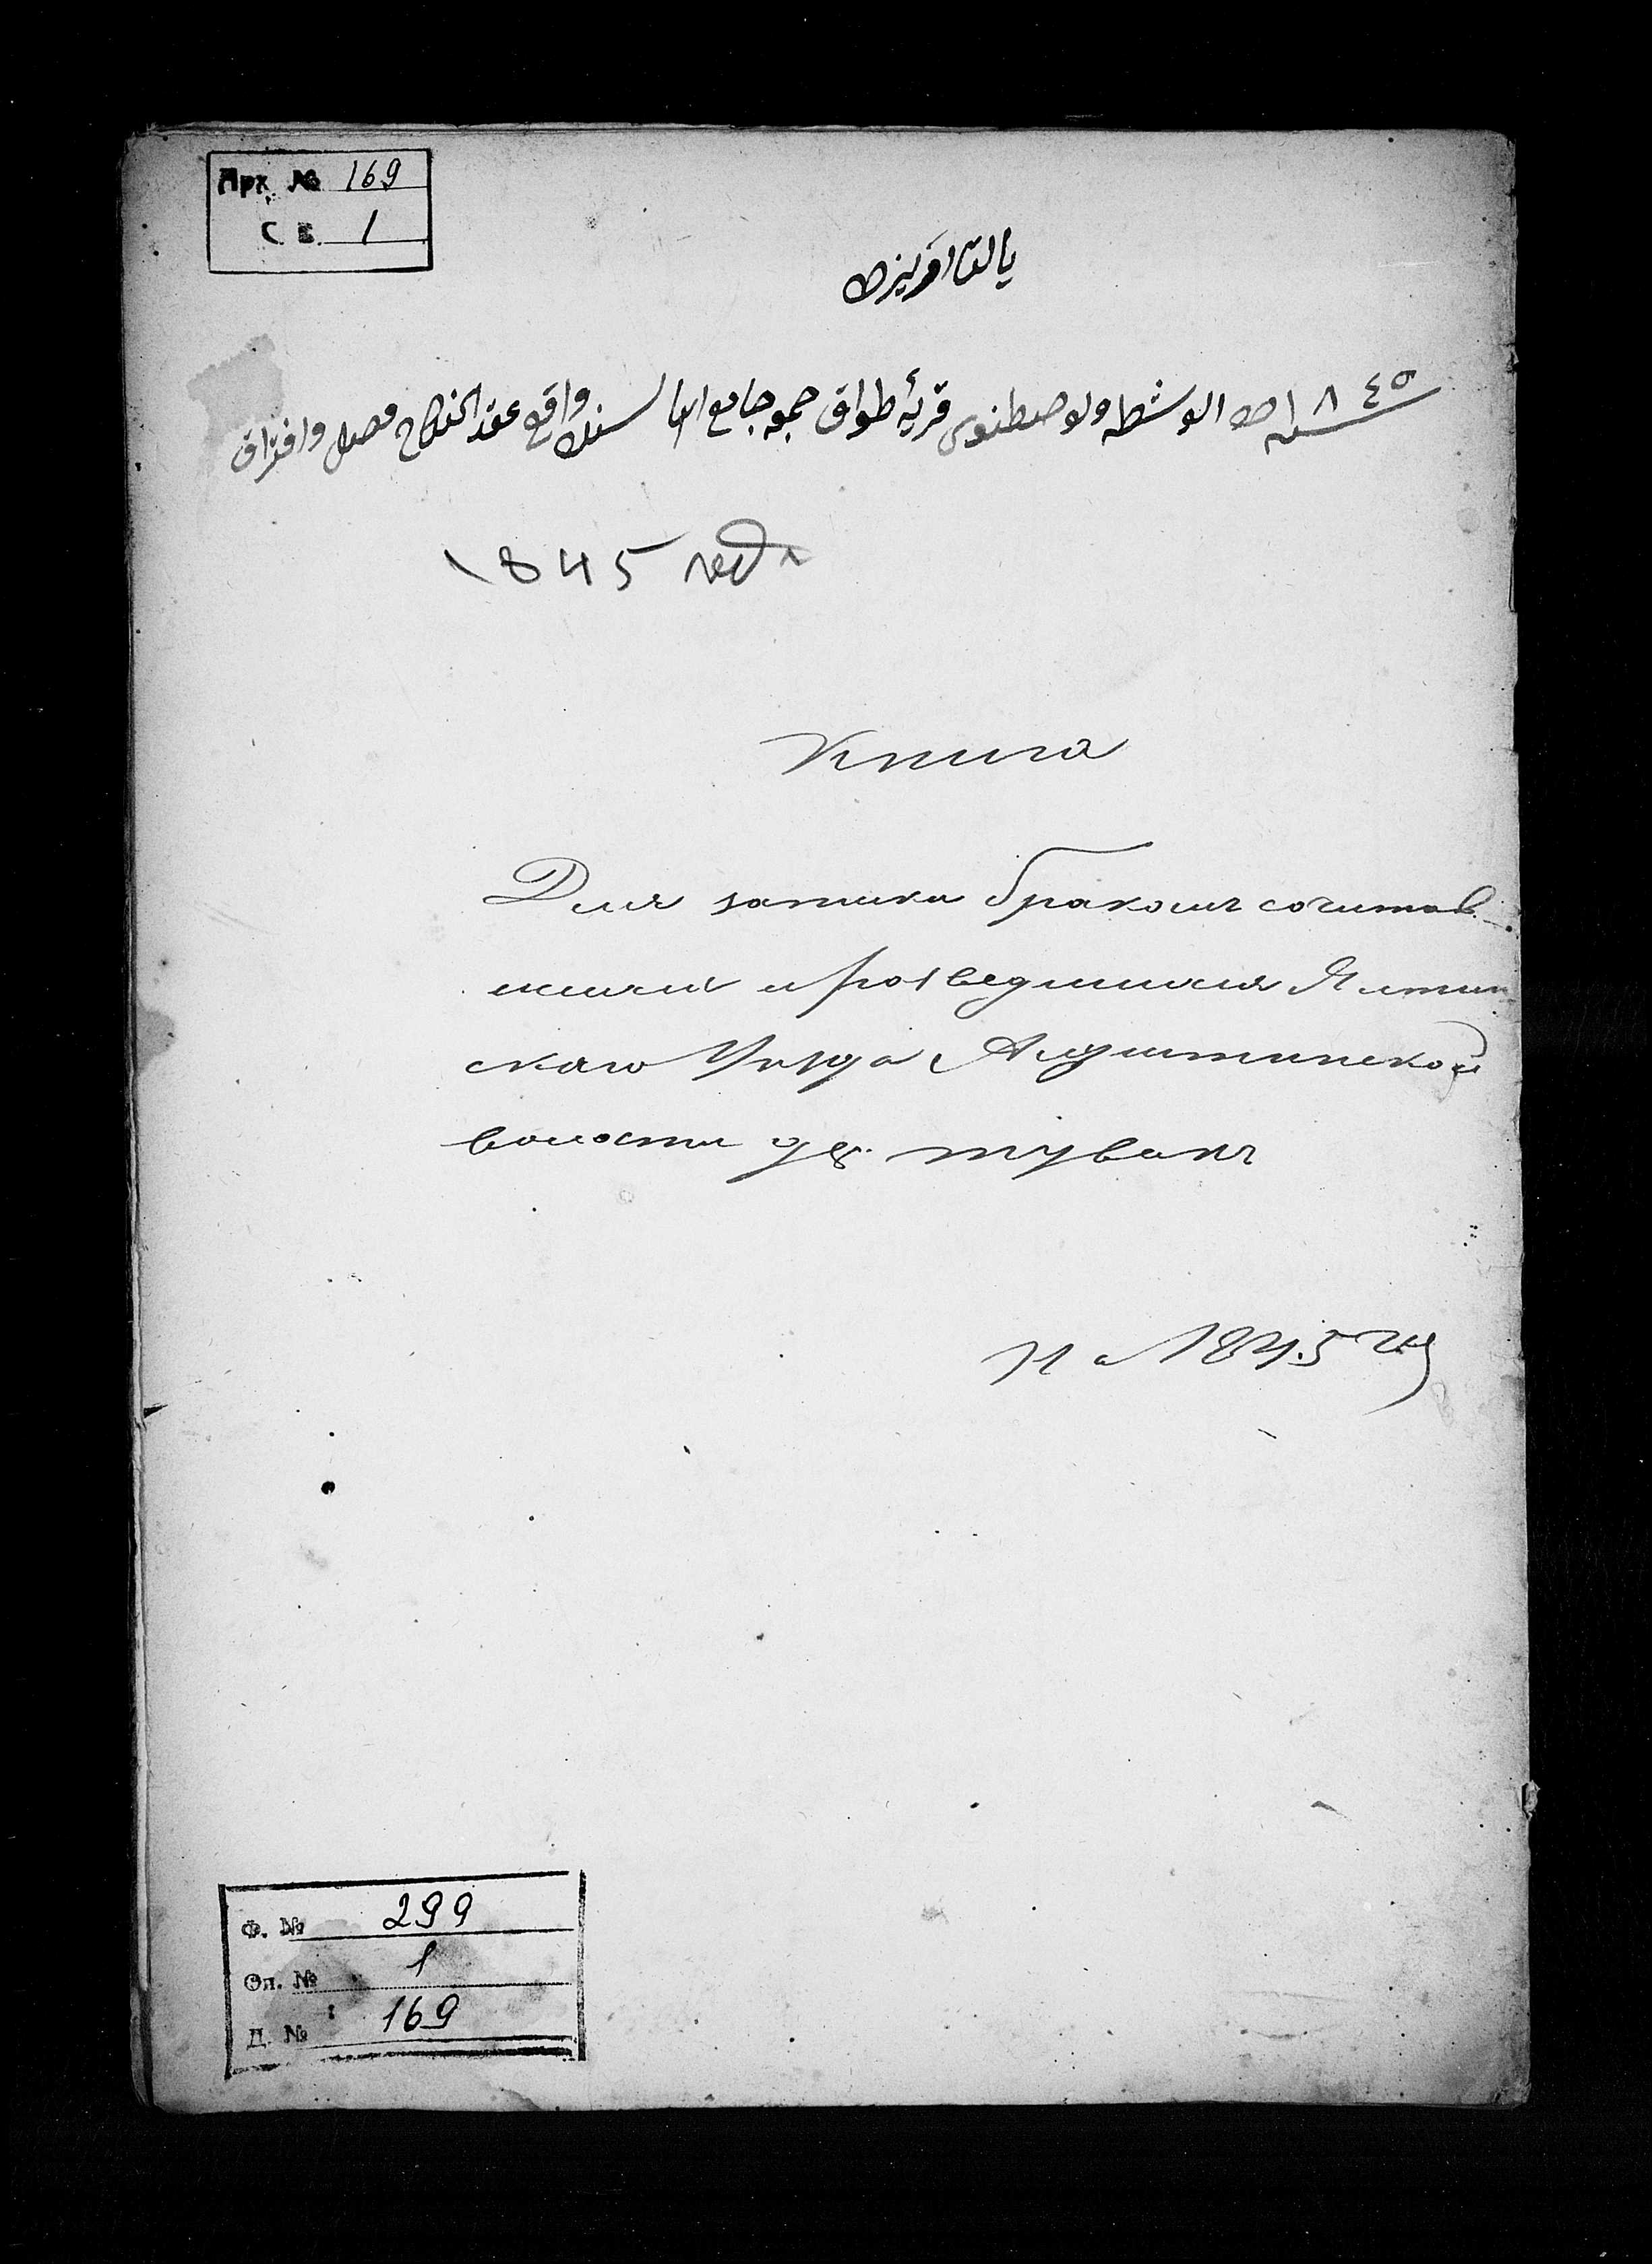 Арх. № 169
Св. 1
يالتا اويزد
سنه ١٨٤٥ الوشطه ولوصطنوى قريۀ طواق جمعه جامع واقع عقد النكاح وافتراق
1845 года
Книга
Для записки бракомъ сочитав-
шихся и розведшихся Ялтин-
скаго Уезда Алуштинской
волости дер. тувакъ
на 1845 год
Ф. № 299
Оп. № 1
Д. № 169